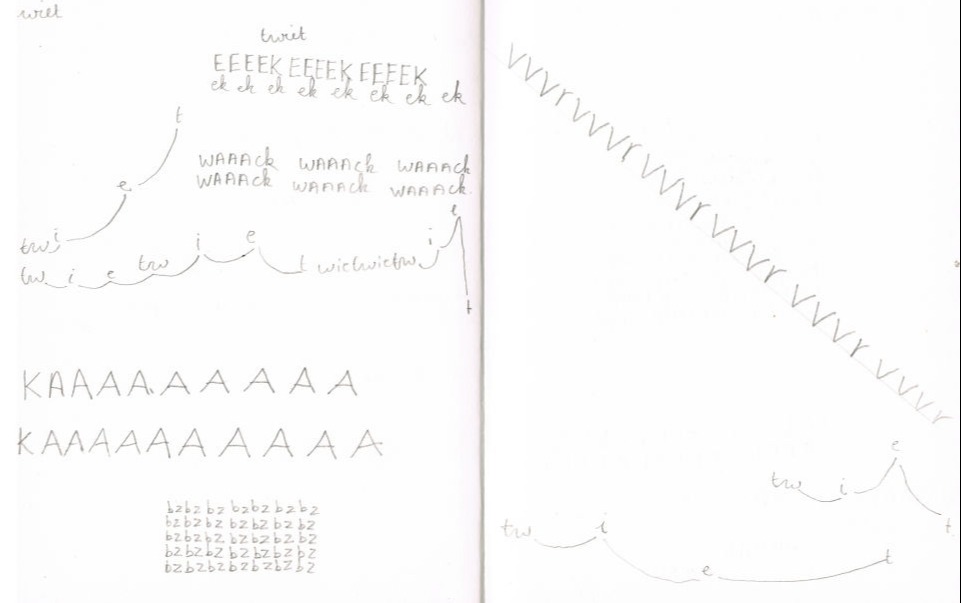 wiet
twiet
EEEEK EEEEK EEEEK
ek ek ek ek ek ek ek ek
WAAACk WAAACk WAAACk
WAAACk WAAACk WAAACk
twiet
twietwietwietwietwiet
KAAAAAAAAA
KAAAAAAAAAA
bzbzbz bzbzbzbz
bzbzbz bzbzbzbz
bzbzbz bzbzbzbz
bzbzbz bzbzbzbz
bzbzbzbzbzbzbz
VVVrVVVr VVVr VVVr VVVr VVVr
twiet
twiet